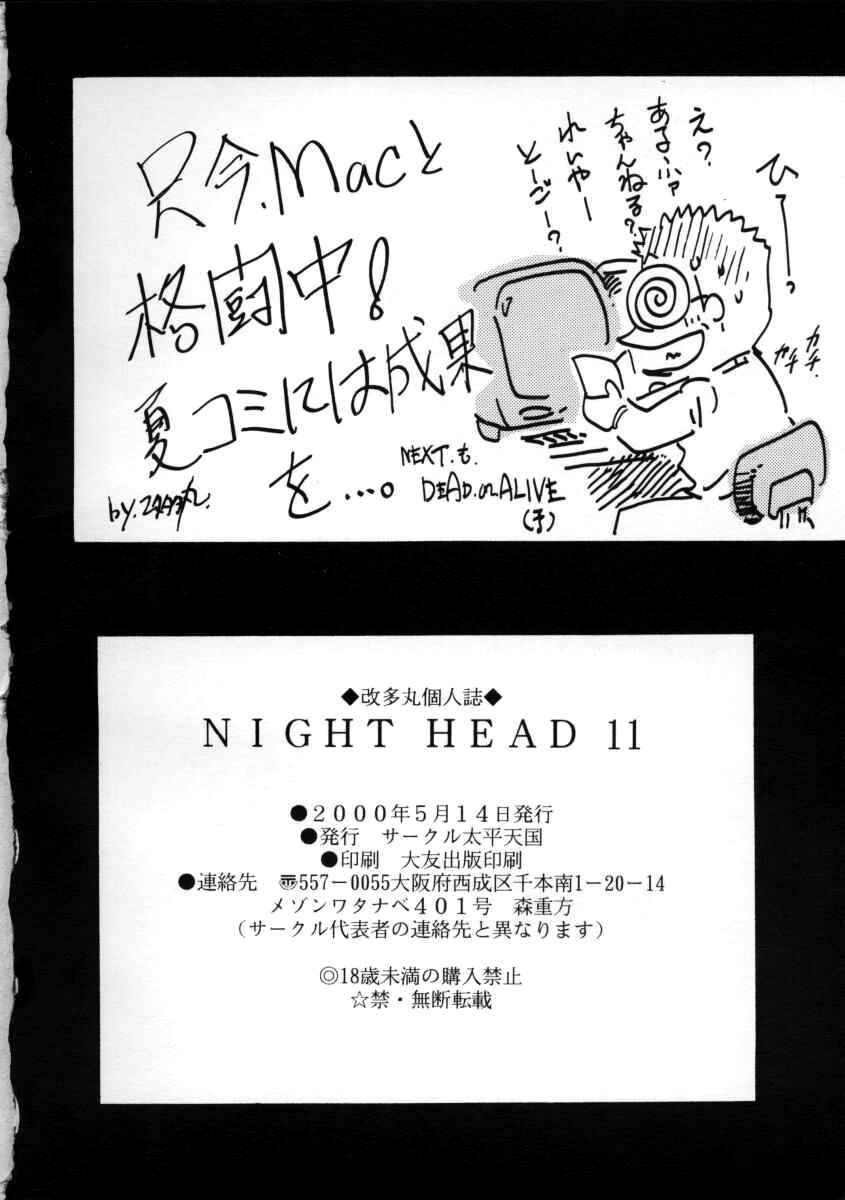 只今.Macと
格闘中!
夏コミには成果
を…。
え?
あるふァ
ちゃんねる?
れいやー
とーごー?
ひーっ
カチ
カチ.
NEXT.も.
DEAD.or.ALIVE
(予)
◆改多丸個人誌◆
NIGHT HEAD 11
●2000年5月14日発行
●発行　サークル太平天国
●印刷　大友出版印刷
●連絡先　〠557−0055大阪府西成区千本南1−20−14
メゾンワタナベ401号　森重方
（サークル代表者の連絡先と異なります）
◎18歳未満の購入禁止
☆禁・無断転載